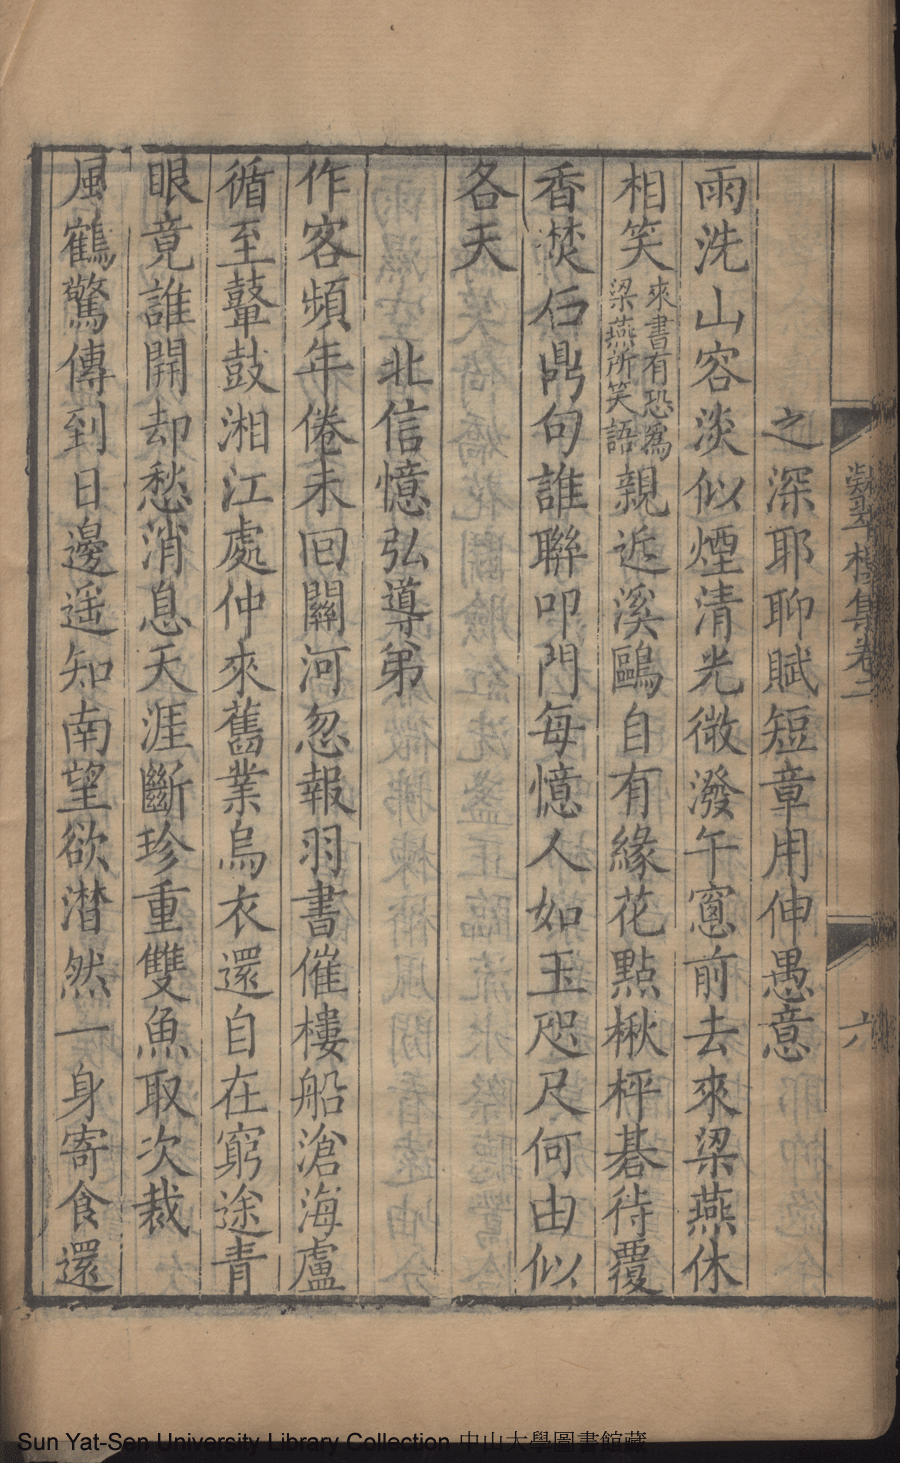 之深耶聊賦短章用伸愚意
雨洗山容淡似煙清光微潑午窻前去來梁燕休
相笑來書有恐爲梁燕所笑語親近溪鷗自有緣花點楸枰碁待覆
香焚石鼎句誰聯叩門每憶人如玉咫尺何由似
各天
北信憶弘導弟
作客頻年倦未回關河忽報羽書催樓船滄海盧
循至鼙鼓湘江處仲來舊業烏衣還自在窮途青
眼竟誰開却愁消息天涯斷珍重雙魚取次裁
風鶴驚傳到日邊遥知南望欲潸然一身寄食還
集卷二
六
Sun Yat-Sen University Library Collection 中山大學圖書館藏